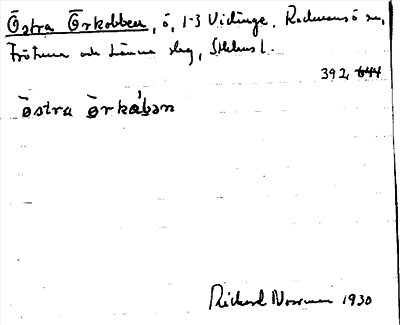 Östra Örkobben, ö, 1-3 Vidinge, Rådmansö sn,
Frötuna och Länna slag, Sthlms l.
392 644
östra ørkábən
Rickard Norrman 1930